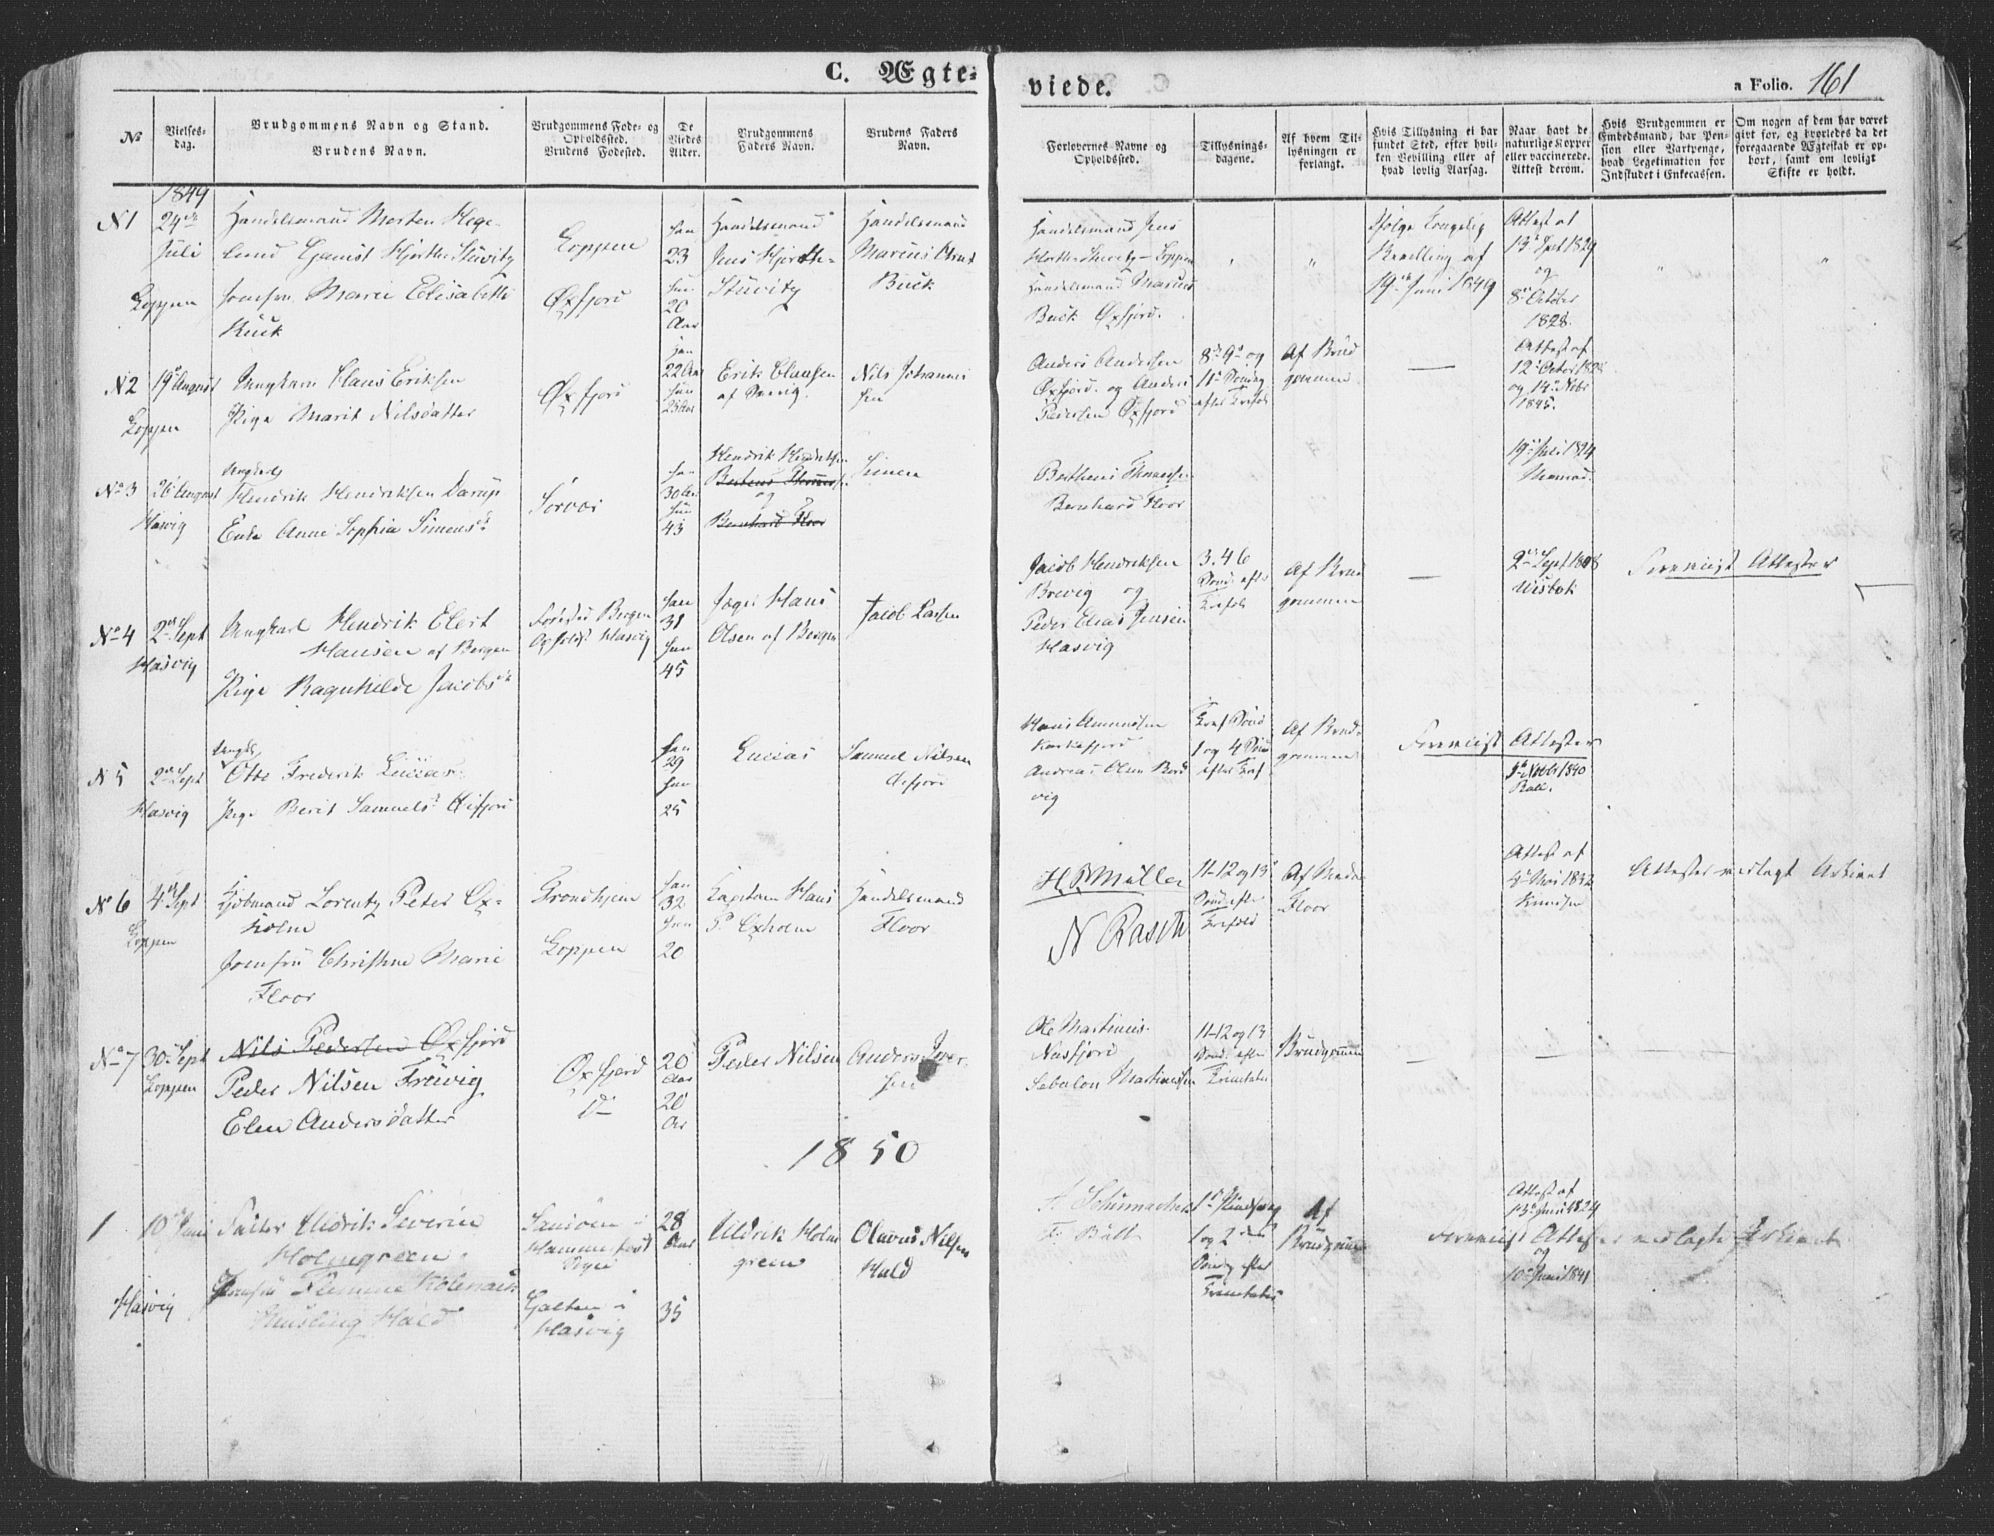 C. Ægte-
viede.
a Folio. 161
No
Vielses-
dag.
Brudgommens Navn og Stand.
Brudens Navn.
Brudgommens Føde- og
Opholdssted.
Brudens Fødested.
De
Viedes
Alder.
Brudgommens
Faders Navn.
Brudens Faders
Navn.
Forlovernes Navne og
Opholdssted.
Tillysnings-
dagene.
Af hvem Til-
lysningen er
forlangt.
Hvis Tillysning ei har
fundet Sted, efter hvil-
ken Bevilling eller af
hvad lovlig Aarsag.
Naar havt de
naturlige Kopper
eller vaccinerede.
Attest derom.
Hvis Brudgommen er
Embedsmand, har Pen-
sion eller Vartpenge,
hvad Legitimation for
Indskudet i Enkecassen.
Om nogen af dem har været
gift før, og hvorledes da det
foregaaende Ægteskab er op-
hørt, samt om lovligt
Skifte er holdt.
1849
N 1
24de
Juli
Loppen
Handelsmand Morten Hege-
lund Hjorth Stuwitz
Jomfru Marie Elisabeth
Buck
Loppen
Øxfjord
23
20
Aar
Handelsmand
Jens Hjorth-
Stuwitz
Handelsmand
Marcus
Buck
Handelsmand Jens
Hjorth Stuwitz - Loppen
Handelsmand Marcus
Buck Øxfjord.
Ifølge Kongelig
Bevilling af
19de Juni 1849
Attest af
13 Sept 1829
og
8de October
1828.
N 2
19de August
Loppen
Ungkarl Claus Eriksen
Pige Marit Nilsdatter
Øxfjord
22 Aar
25 Aar
Erik Clausen
Nils Johannes
sen
Anders Andersen
Øxfjord. og Anders
Pedersen Øxfjord
8de 9de og
11te Søndag
efter Trefold
Af Brud
gommen
Attest af
og 14 Nobr
1845.
No 3
26 August
Hasvig
Ungkarl
Hendrik Hendriksen Darup
Enke Anne Sophia Simonsd
Sørvær
30 Aar
43
Hendrik Hendriksen
og
Bernhard Floor
Simen
Bernhard Floor
19 Juli 1824
No 4
2den Sept
Hasvig
Ungkarl Hendrik Elert
Hansen af Bergen
Pige Ragnhilde Jacobsd
Fødested Bergen
Opholds Hasvig
31
45
Hans
Olsen af Bergen
Jacob Larsen
Jacob Hendriksen
Brevig og
Peder Elias Jensen
Hasvig
3. 4 6
Sønd. efter
Trefold
Af Brud
gommen
Foreviist Attester
N 5
2den Sept
Hasvig
Ungkarl
Otto Frederik Lucias
Pige Berit Samuelsd
29
25
Lucias
Samuel Nilsen
Andreas Olsen Bard
vig
1 og 4 Sønd
efter Tref
Af Brud-
gommen
Foreviist Attester
9de Nobr 1840
No 6
4de Sept
Loppen
Kjøbmand Lorentz Peter Ox-
holm
Jomfru Christine Marie
Floor
Trondhjem
Loppen
32
20
Kapitain Hans
P. Oxholm
Handelsmand
Floor
H. P. Müller
N Rasch
11-12 og 13
Sønd. efter
Trefold
Floor
Attest af
4de Mai 1832
Knudsen
Attester nedlagt Arkivet
No 7
30 Sept
Loppen
Nils Pedersen Øxfjord
Peder Nilsen Trevig
Elen Andersdatter
Øxfjord
do
20
Aar
20
Aar
Peder Nilsen
Anders Iver-
sen
Ole Martinus.
Nusfjord
Sebulon Martinussen
11-12 og 13
Sønd. efter
Trinitatis
Brudgommen
1850
1
10de Juni
Hasvig
Faster Uldrik Severin
Holmgreen
Jomfru
Husling Hald
Sandøen i
Hammerfest
Galten i
Hasvig
28
Aar
35
Uldrik Holm
green
Olavus Nilsen
Hald
H Schumacher
F. Bull
1ste Pindsedag
1 og 2den
Sønd. efter
Trinitatis
Af
Brudgommen
Attest af
13 Juni 1824
og
10de Juni 1841
Foreviist Attester nedlagte i Arkivet